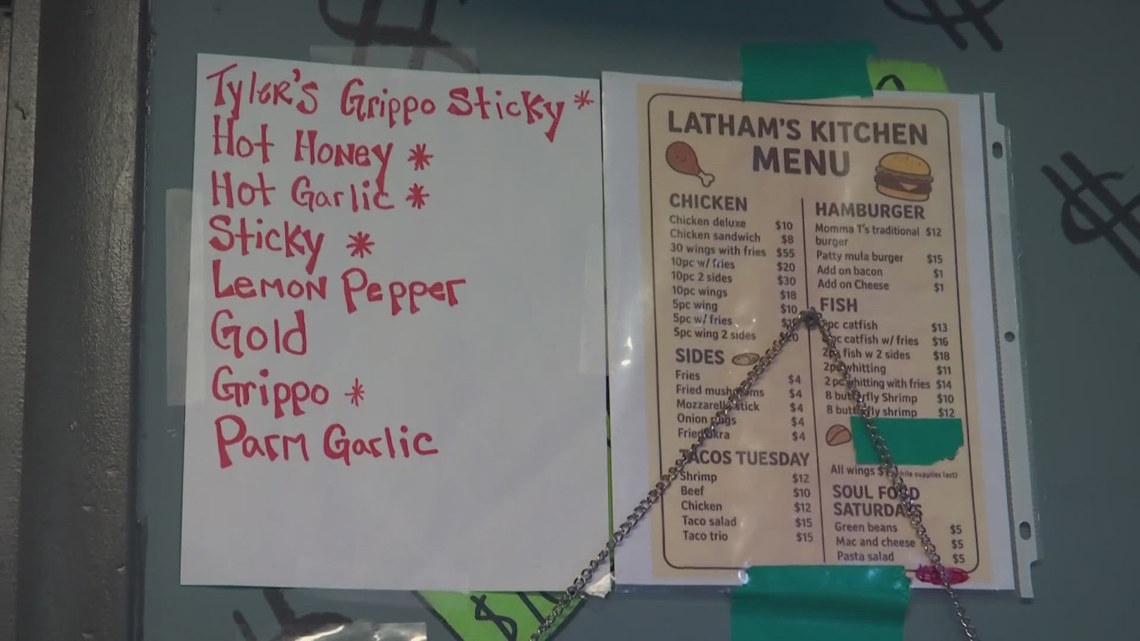 Tyler's Grippo Sticky *
Hot Honey *
Hot Garlic *
Sticky *
Lemon Pepper
Gold
Grippo *
Parm Garlic
LATHAM'S KITCHEN
MENU
CHICKEN
Chicken deluxe $10
Chicken sandwich $8
30 wings with fries $55
10pc w/ fries $20
10pc 2 sides $30
10pc wings $18
5pc wing $10
5pc w/ fries
5pc wing 2 sides
SIDES
Fries $4
Fried mushrooms $4
Mozzarella stick $4
Onion rings $4
Fried okra $4
TACOS TUESDAY
Shrimp $12
Beef $10
Chicken $12
Taco salad $15
Taco trio $15
HAMBURGER
Momma T's traditional $12
burger
Patty mula burger $15
Add on bacon $1
Add on Cheese $1
FISH
catfish $13
catfish w/ fries $16
2pc fish w 2 sides $18
2pc whitting $11
2 pc whitting with fries $14
8 butterfly Shrimp $10
8 butterfly shrimp $12
All wings (while supplies last)
SOUL FOOD
SATURDAYS
Green beans $5
Mac and cheese $5
Pasta salad $5